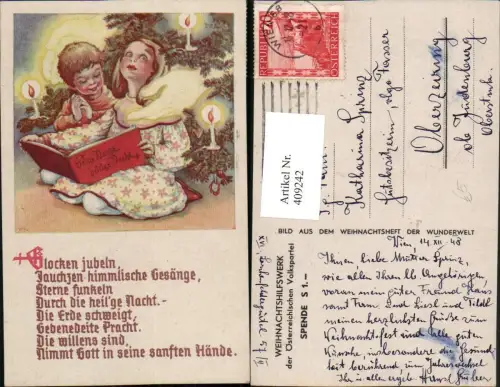 Glocken jubeln,
Jauchzen himmlische Gesänge,
Sterne funkeln
Durch die heil'ge Nacht.-
Die Erde schweigt,
Gebenedeite Pracht.
Die willens sind,
Nimmt Gott in seine sanften Hände.
WIEN
REPUBLIK ÖSTERREICH
Artikel Nr.
409242
Katharina Sprinz
Gutsbesitzerin,
Oberzeiring
ob Judenburg
Oberstmk.
BILD AUS DEM WEIHNACHTSHEFT DER WUNDERWELT
WEIHNACHTSHILFSWERK
der Österreichischen Volkspartei
SPENDE S 1.—
Wien, 14.XII.48
Ihnen liebe Mutter Sprinz,
wie allen Ihren lb Angehörigen
voran mein guter Freund Hans
samt Fam. und Liesl und Thildl
meinen herzlichsten Grüße zum
Weihnachtsfest und alle guten
Wünsche, insbesondere die Gesund
heit berührend, zum Jahreswechsel
Ihr allzeit erg.